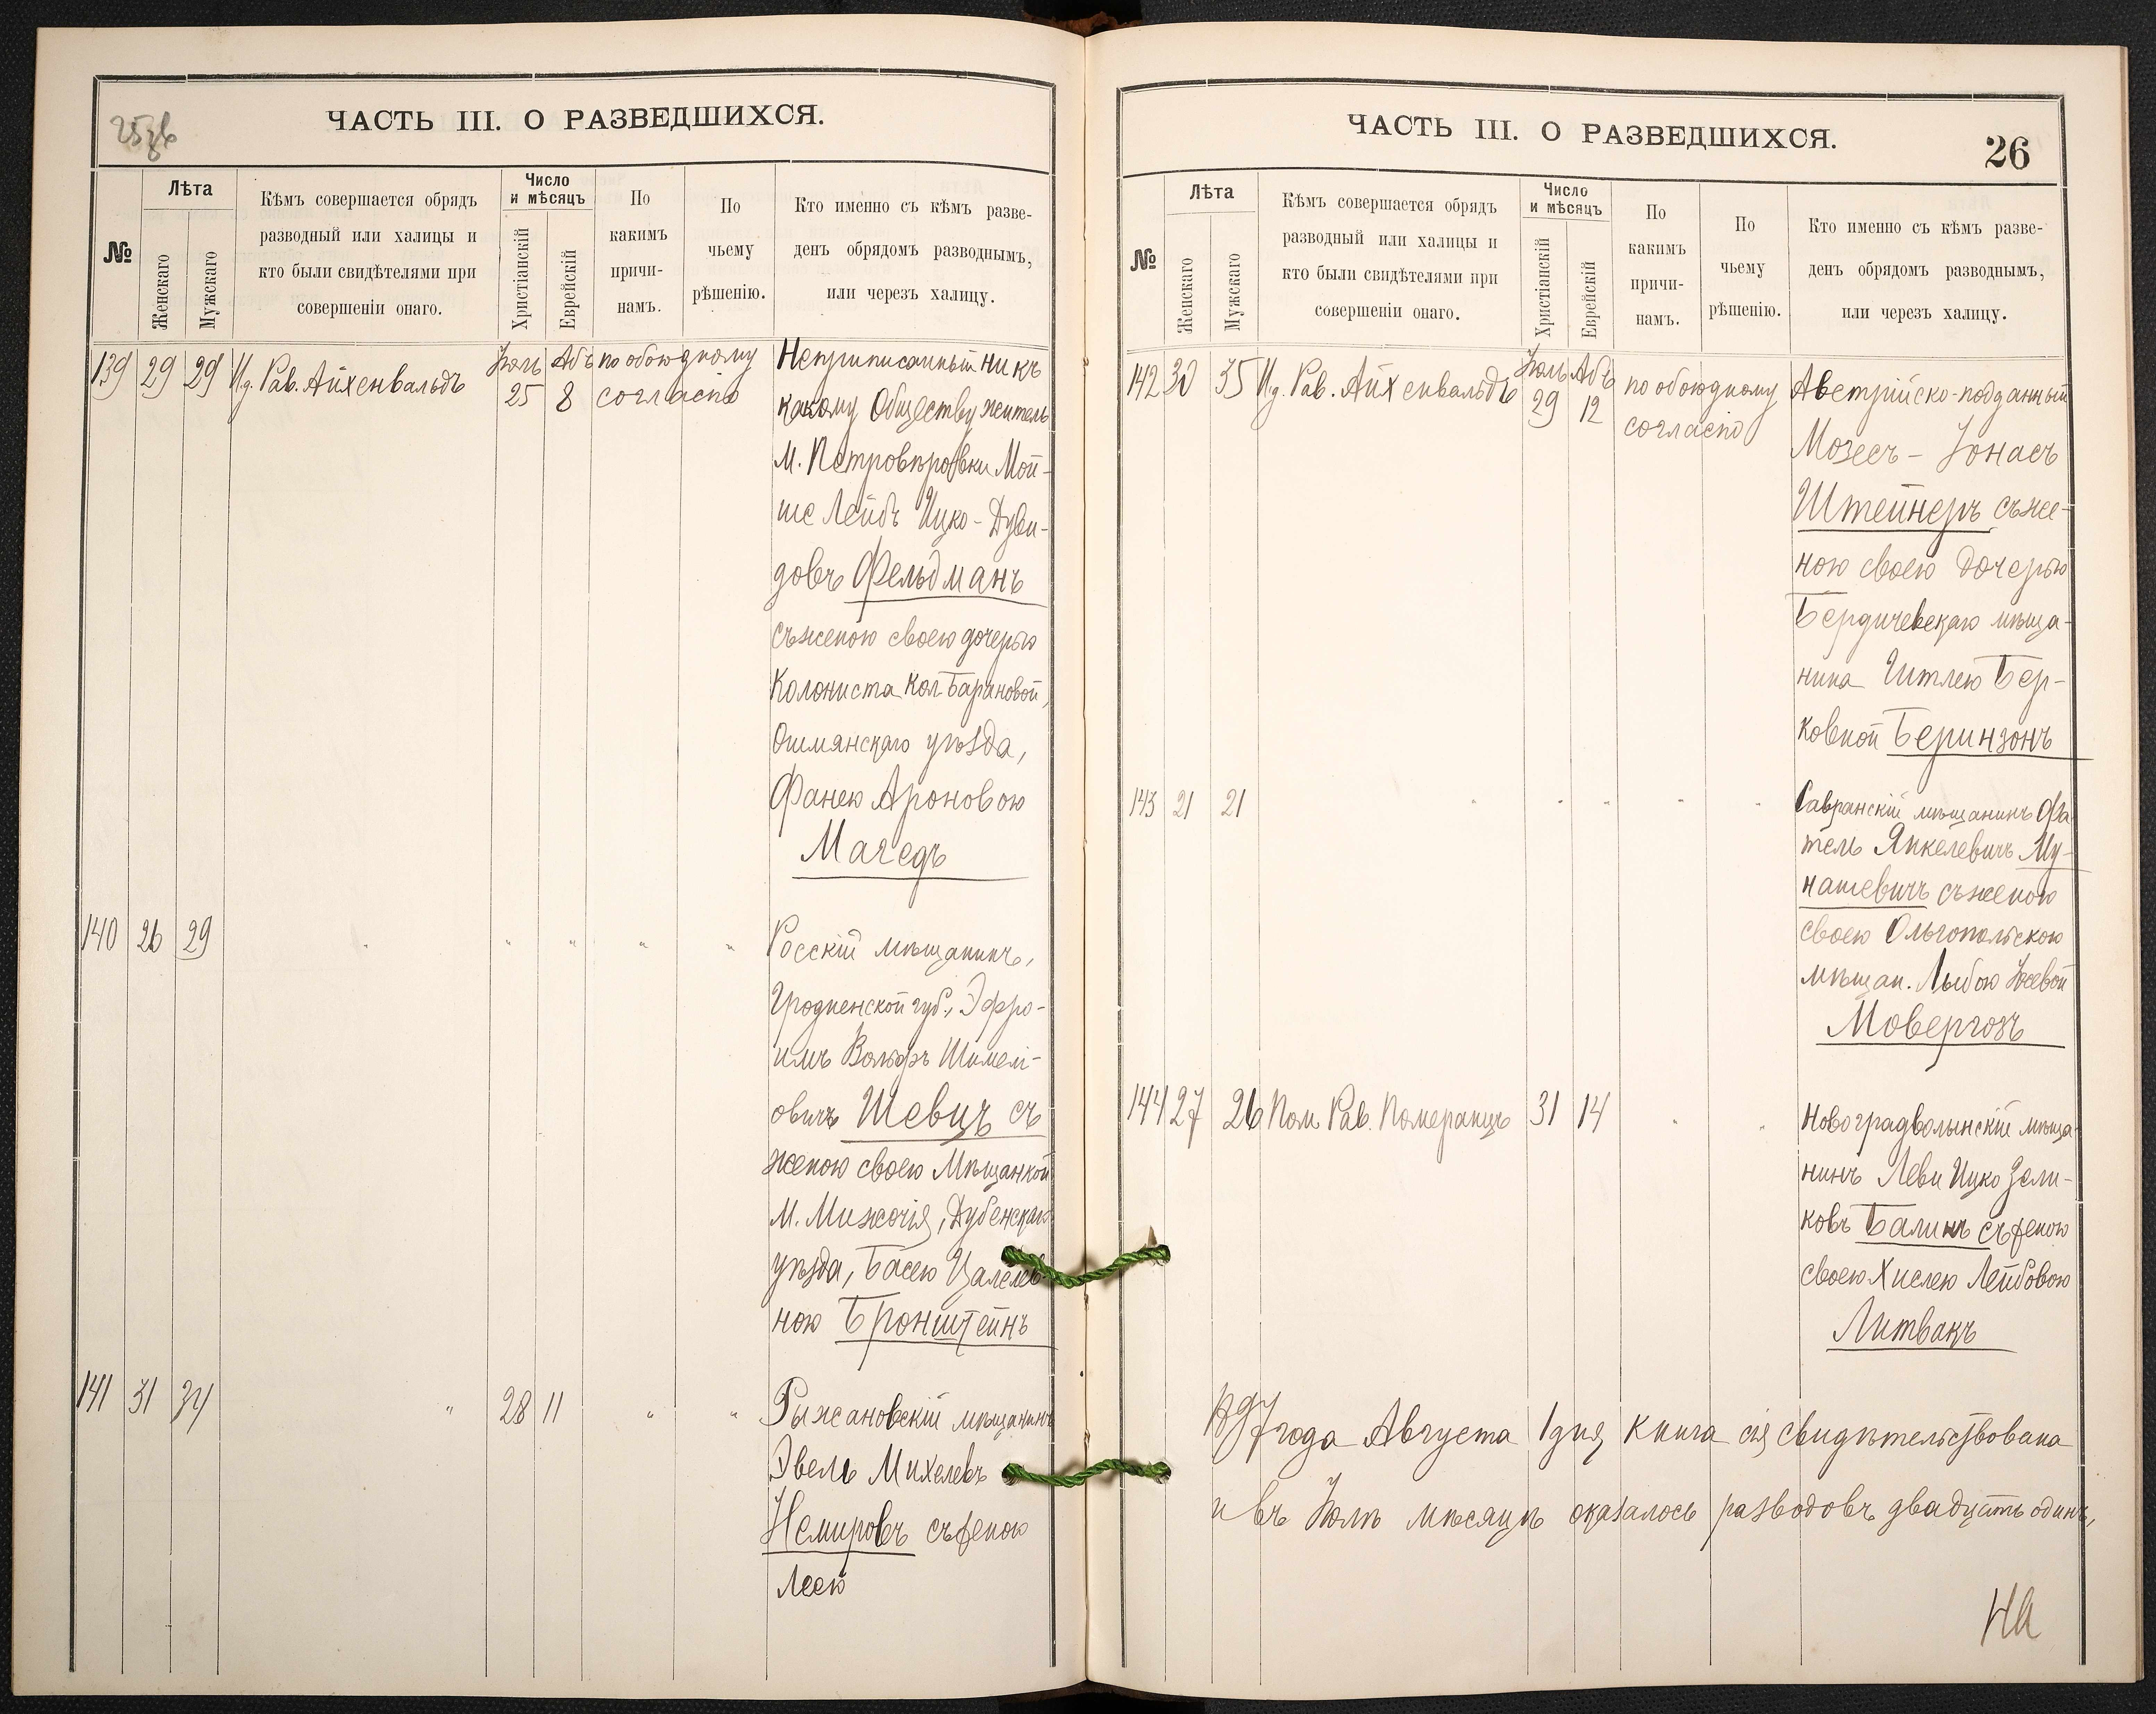 ЧАСТЬ III. О РАЗВЕДШИХСЯ.
№
Лѣта
Женскаго
Мужскаго
Кѣмъ совершается обрядъ
разводный или халицы и
кто были свидѣтелями при
совершеніи онаго.
Число
и мѣсяцъ
Христіанскій
Еврейскій
По
какимъ
причи-
намъ.
По
чьему
рѣшенію.
Кто именно съ кѣмъ разве-
денъ обрядомъ разводнымъ,
или черезъ халицу.
139 29 29 Ид. Рав. Айхенвальдъ Іюль 25 Абъ 8 по обоюдному
согласію
Неприписанный ни къ
какому Обществу житель
М. Петровѣровки Мой-
ше Лейбъ Ицко-Дуви-
довъ Фельдманъ
съ женою своею дочерью
Колониста Кол. Барановой,
Ошмянскаго уѣзда,
Фанею Ароновою
Магедъ
140 26 29 " " " " "
Росскій мѣщанинъ,
Гродненской губ., Эфро-
имъ Вольфъ Шимелі-
овичъ Шевцъ съ
женою своею Мѣщанкой
М. Мизочія, Дубенскаго
уѣзда, Басею Цалелев-
ною Бронштейнъ
141 31 34 " 28 11 " "
Рыжановскій мѣщанинъ
Эвель Михелевъ
Немировъ съ женою
Леею
ЧАСТЬ III. О РАЗВЕДШИХСЯ.
26
№
Лѣта
Женскаго
Мужскаго
Кѣмъ совершается обрядъ
разводный или халицы и
кто были свидѣтелями при
совершеніи онаго.
Число
и мѣсяцъ
Христіанскій
Еврейскій
По
какимъ
причи-
намъ.
По
чьему
рѣшенію.
Кто именно съ кѣмъ разве-
денъ обрядомъ разводнымъ,
или черезъ халицу.
142 30 35 Ид. Рав. Айхенвальдъ Іюль 29 Абъ 12 по обоюдному
согласію
Австрійско-подданный
Мозесъ-Іонасъ
Штейнеръ съ же-
ною своею дочерью
Бердичевскаго мѣща-
нина Гитлею Бер-
ковной Беринзонъ
143 21 21 " " " " "
Савранскій мѣщанинъ
Янкелевичъ Му-
нашевичъ съ женою
своею Ольгопольскою
мѣщан.
Мовергозъ
144 27 26 Пом. Рав. Померанцъ 31 14 " "
Новоградволынскій мѣща-
нинъ Леви Ицко Зели-
ковъ Балинъ съ женою
своею Хислею Лейбовою
Литвакъ
1897 года Августа 1 дня книга сія свидѣтельствована
и въ Іюлѣ мѣсяцѣ оказалось разводовъ двадцать одинъ,